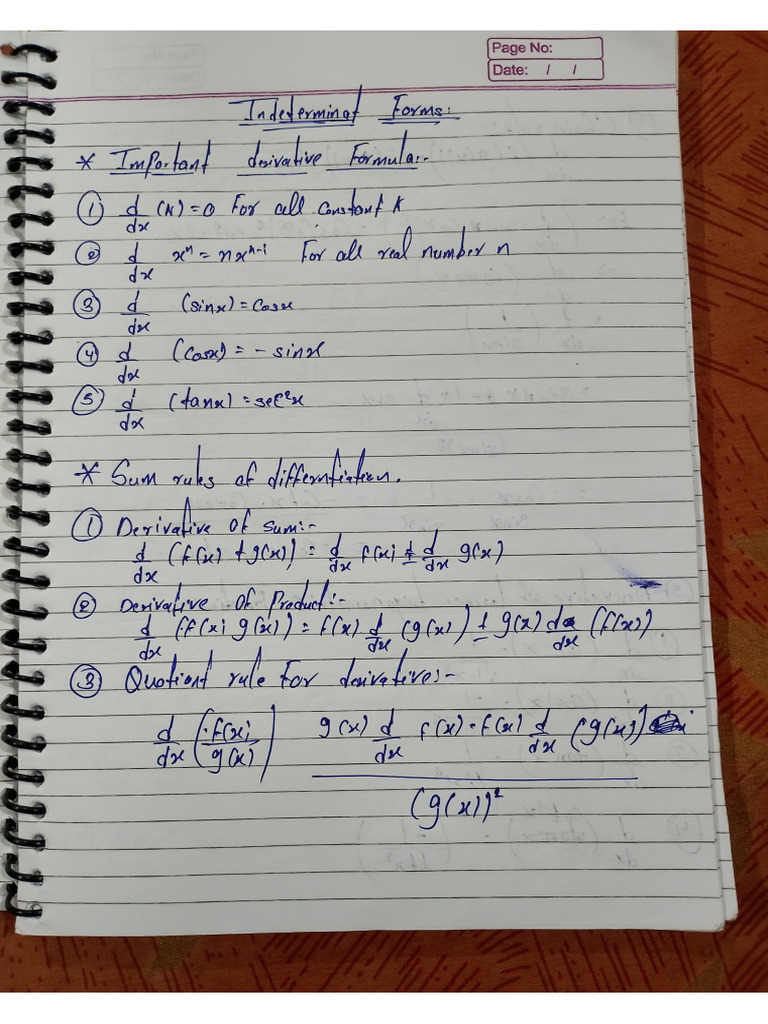 Page No:
Date: / /
Indeterminat Forms:
* Important derivative Formula:-
① d/dx (K) = 0 For all constant K
② d/dx xⁿ = nxⁿ⁻¹ For all real number n
③ d/dx (sinx) = cosx
④ d/dx (cosx) = - sinx
⑤ d/dx (tanx) = sec²x
* Sum rules of differntiation.
① Derivative Of sum:-
d/dx (f(x) + g(x)) = d/dx f(x) ± d/dx g(x)
② Derivative Of Product:-
d/dx (f(x) g(x)) = f(x) d/dx (g(x)) ± g(x) d/dx (f(x))
③ Quotiant rule For derivative:-
d/dx (f(x)/g(x)) g(x) d/dx f(x) - f(x) d/dx (g(x))
(g(x))²